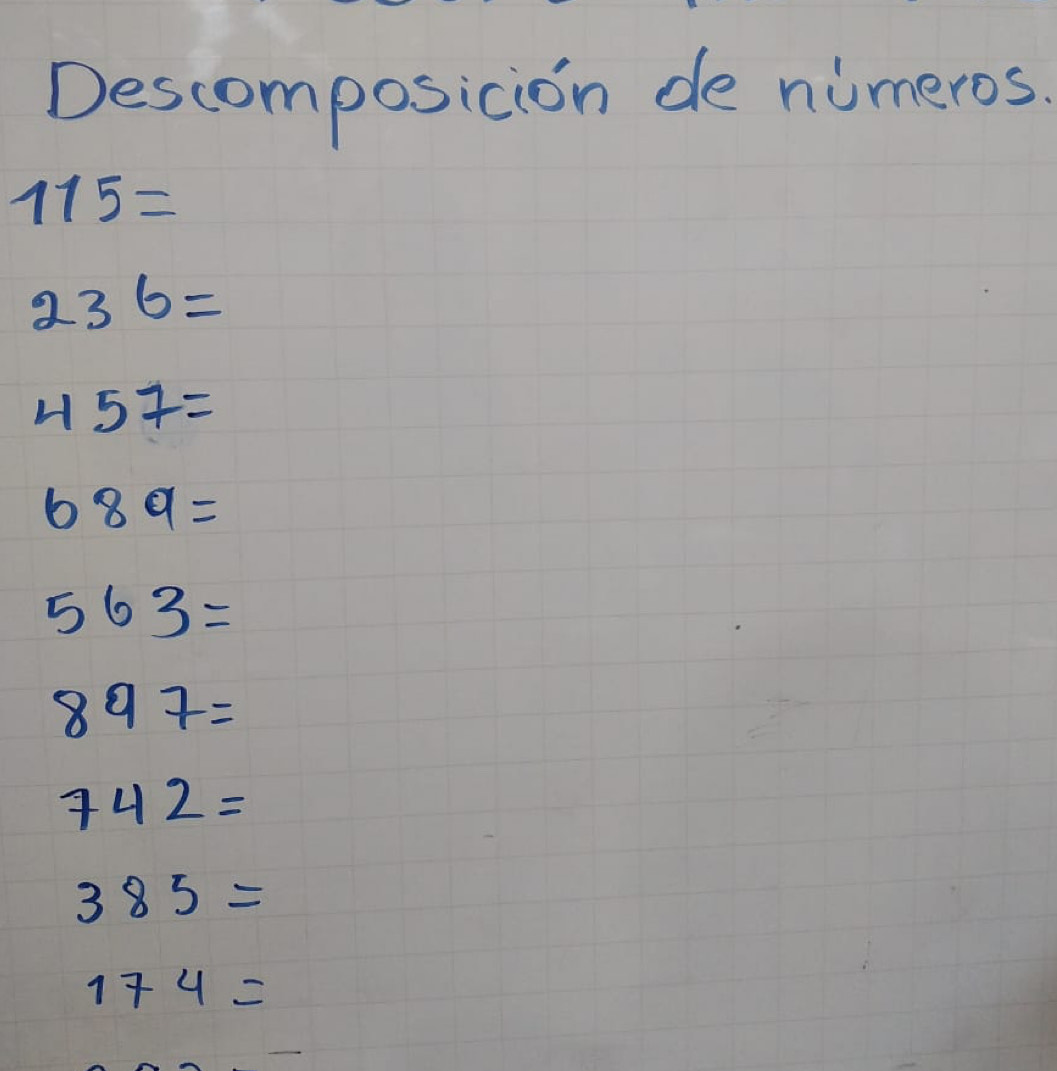 Descomposición de números.
115=
236=
457=
689=
563=
897=
742=
385=
174=